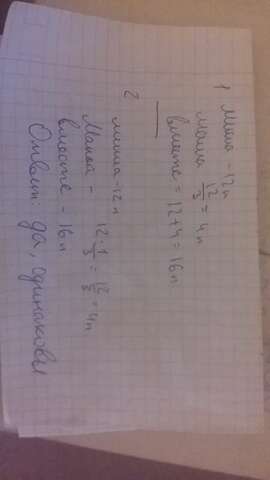 1 Миша - 12л
Маша 12/3 = 4л
вместе = 12+4 = 16л
2 миша - 12л
Машей - 12·1/3 = 12/3 = 4л
вместе - 16л
Ответ: да, одинаковы